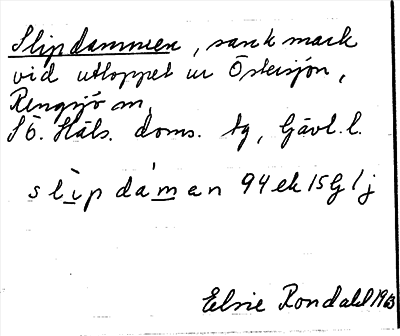 Slipdammen, sank mark
vid utloppet ur Östersjön,
Rengsjö sn,
Sö. Häls. doms. tg, Gävl. l.
slipdaman 94 ek 15G 1j
Elsie Rondahl 1963